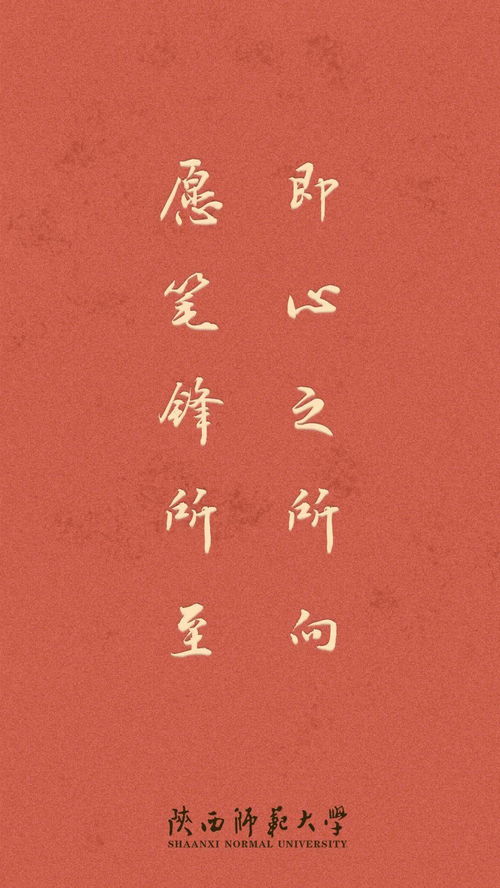 愿笔锋所至
即心之所向
陕西師範大學
SHAANXI NORMAL UNIVERSITY